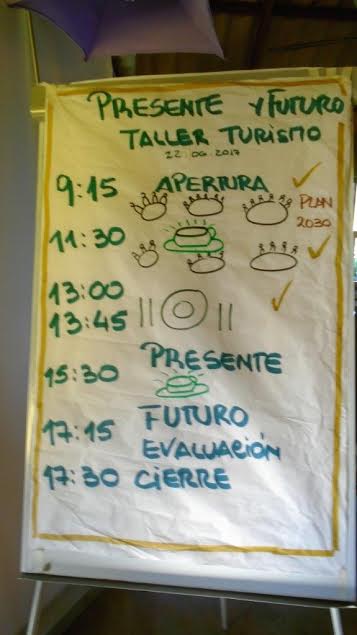 PRESENTE Y FUTURO
TALLER TURISMO
22.06.2017
9:15 APERTURA
PLAN
2030
11:30
13:00
13:45
PRESENTE
15:30
FUTURO
17:15
EVALUACIÓN
17:30 CIERRE